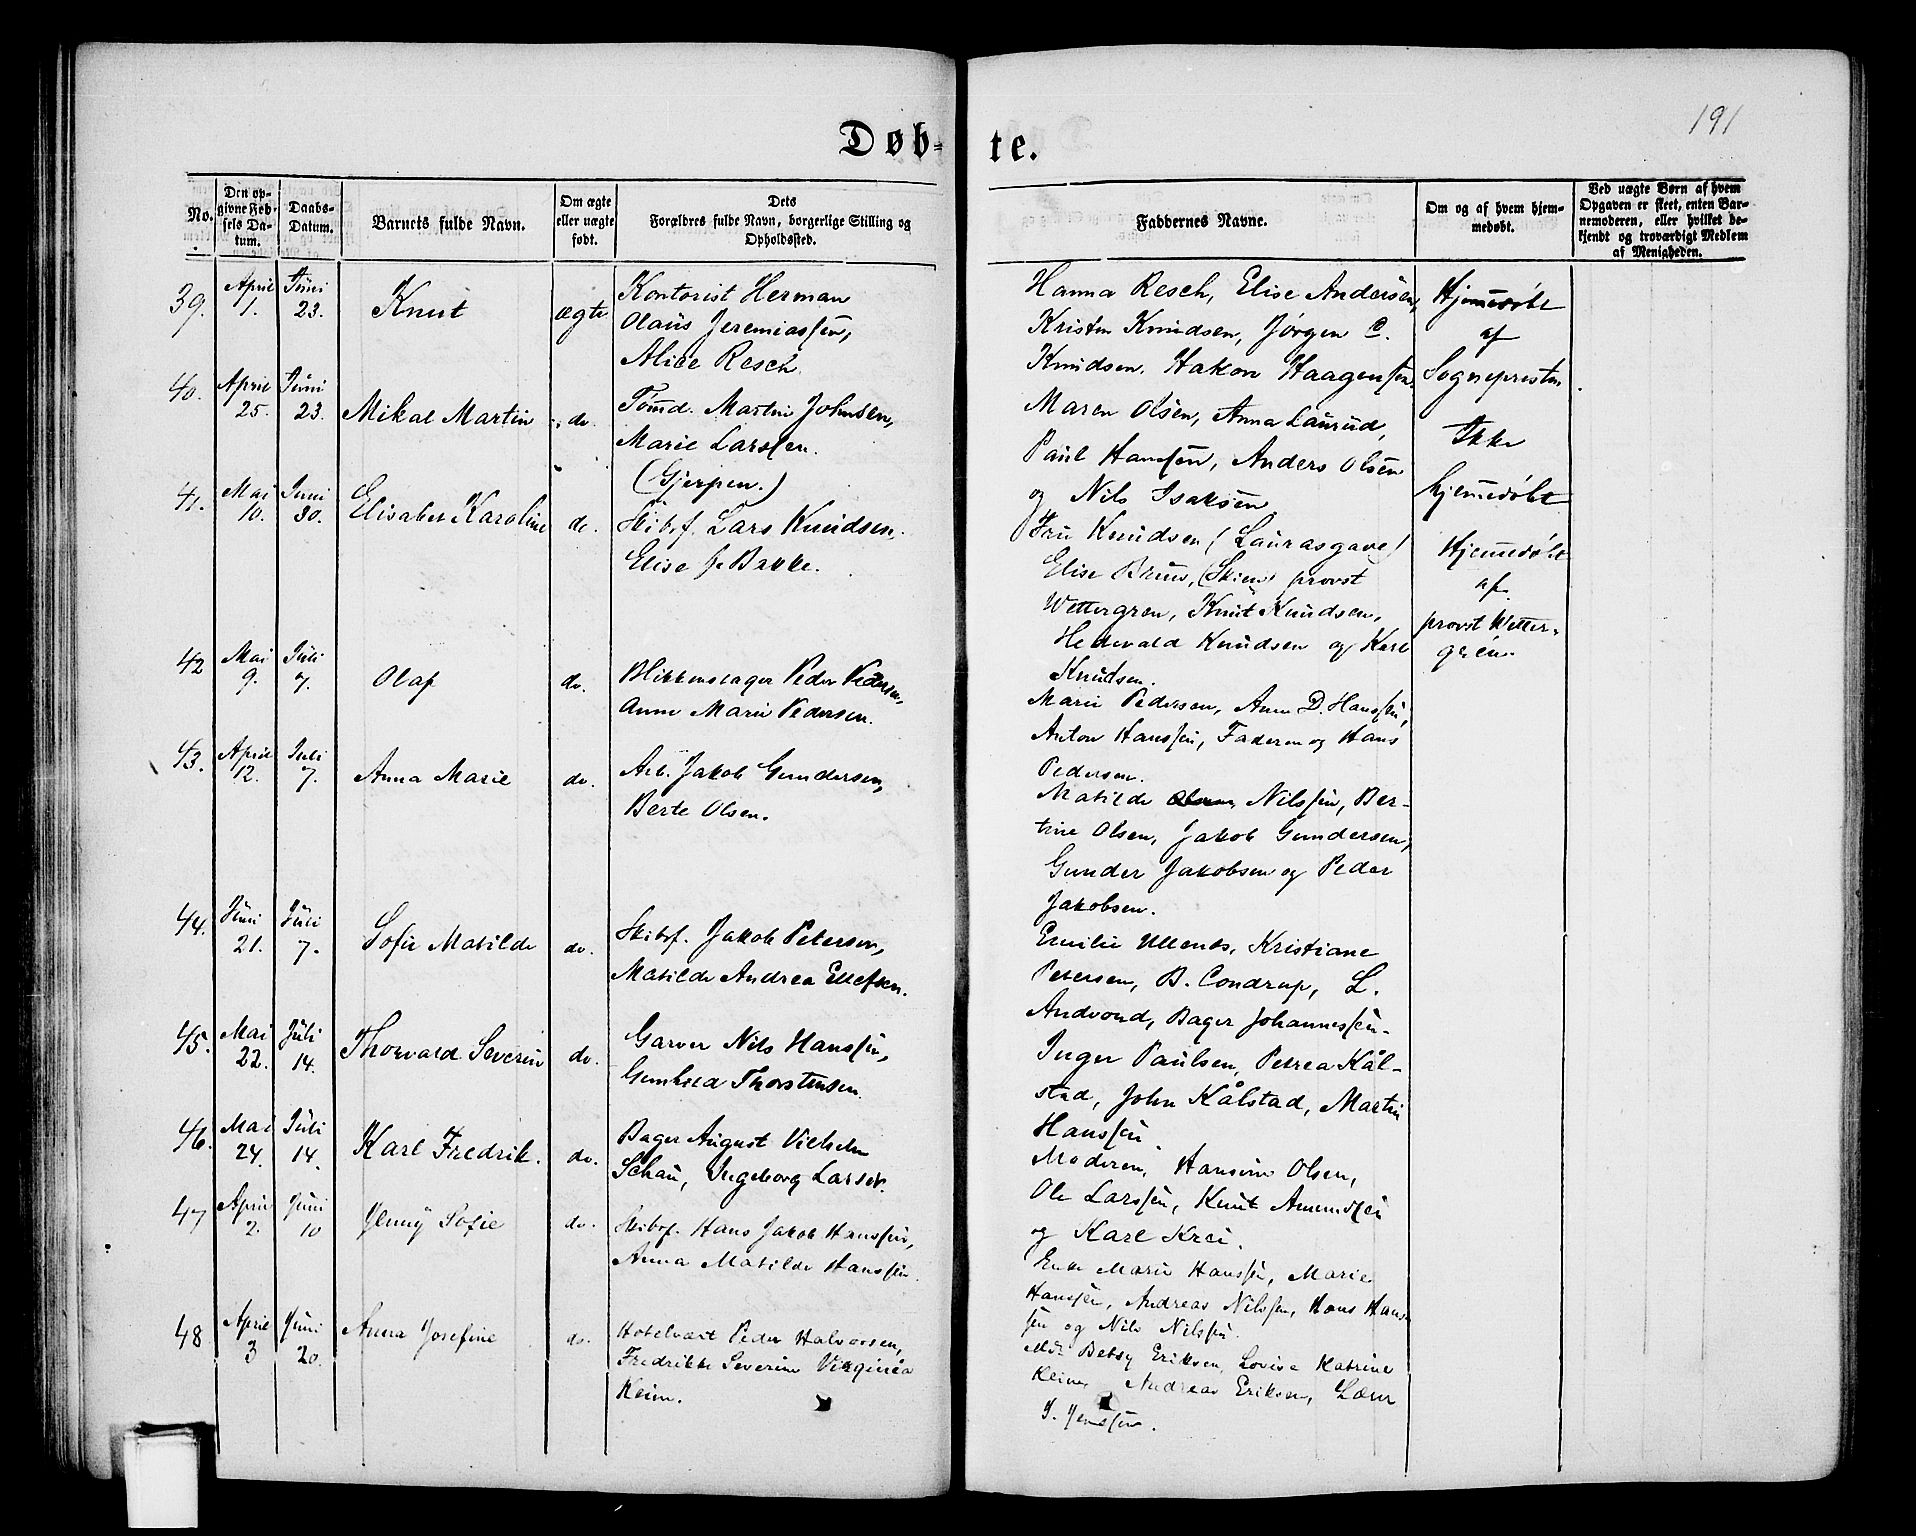 191
Døb-
te.
No.
Den op-
givne Fød-
sels Da-
tum.
Daabs-
Datum.
Barnets fulde Navn.
Om ægte
eller uægte
født.
Dets
Forældres fulde Navn, borgerlige Stilling og
Opholdssted.
Faddernes Navne.
Om og af hvem hjem-
medøbt.
Ved uægte Børn af hvem
Opgaven er skeet, enten Bar-
nemoderen, eller hvilket be-
kjendt og troværdigt Medlem
af Menigheden.
39.
April
1.
Juni
23.
Knut
ægte
Kontorist Herman
Olaus Jeremiassen,
Alice Resch
Hanna Resch, Elise Andersen,
Kristen Knudsen, Jørgen C.
Knudsen. Hakon Haagensen.
Hjemmedøbt
af
Sognepresten
40.
April
25.
Juni
23.
Mikal Martin
do.
Tømd. Martin Johnsen,
Marie Larssen.
(Gjerpen.)
Maren Olsen, Anna Laurud,
Paul Hanssen, Anders Olsen
og Nils Isaksen
Ikke
hjemmedøbt
41.
Mai
10.
Juni
30.
Elisabet Karoline
do.
Skibsf. Lars Knudsen,
Elise f. Bakke.
Fru Knudsen (Laurasgave)
Elise Bruus, (Skien) provst
Wettergren, Knut Knudsen,
Hedevald Knudsen og Karl
Knudsen.
Hjemmedøbt
af
provst Wetter-
gren
42
Mai
9.
Juli
7.
Olaf
do.
Blikkenslager Peder Pedersen,
Anne Marie Pedersen.
Marie Pedersen, Anne D. Hanssen,
Anton Hanssen, Faderen og Hans
Pedersen.
43.
April
12.
Juli
7.
Anna Marie
do.
Arb. Jakob Gundersen,
Berte Olsen.
Matilde Nilssen, Ber-
tine Olsen, Jakob Gundersen,
Gunder Jakobsen og Peder
Jakobsen.
44.
Juni
21.
Juli
7.
Sofie Matilde
do.
Skibsf. Jakob Petersen,
Matilde Andrea Ellefsen.
Emilie Ullenes, Kristiane
Petersen, B. Condrup, L.
Andvord, Bager Johannessen.
45.
Mai
22.
Juli
14.
Thorvald Severin
do.
Garver Nils Hanssen,
Gunhild Thorstensen.
Inger Paulsen, Petrea Kål-
stad, John Kålstad, Martin
Hanssen
46.
Mai
24.
Juli
14.
Karl Fredrik.
do.
Bager August Vilhelm
Schau, Ingeborg Larsen.
Moderen, Hansine Olsen,
Ole Larssen, Knut Amundsen
og Karl Krei.
47
April
2.
Juni
10
Jenny Sofie
do.
Skibsf. Hans Jakob Hanssen,
Anna Matilde Hanssen.
Enke Marie Hanssen, Marie
Hanssen, Andreas Nilssen, Hans Hans-
sen og Nils Nilssen.
48
April
3
Juni
20.
Anna Josefine
do.
Hotelvært Peder Halvorsen,
Fredrikke Severine Virginia
Keim.
Betsy Eriksen, Lovise Katrine
Keim, Andreas Eriksen,
J. Jenssen.